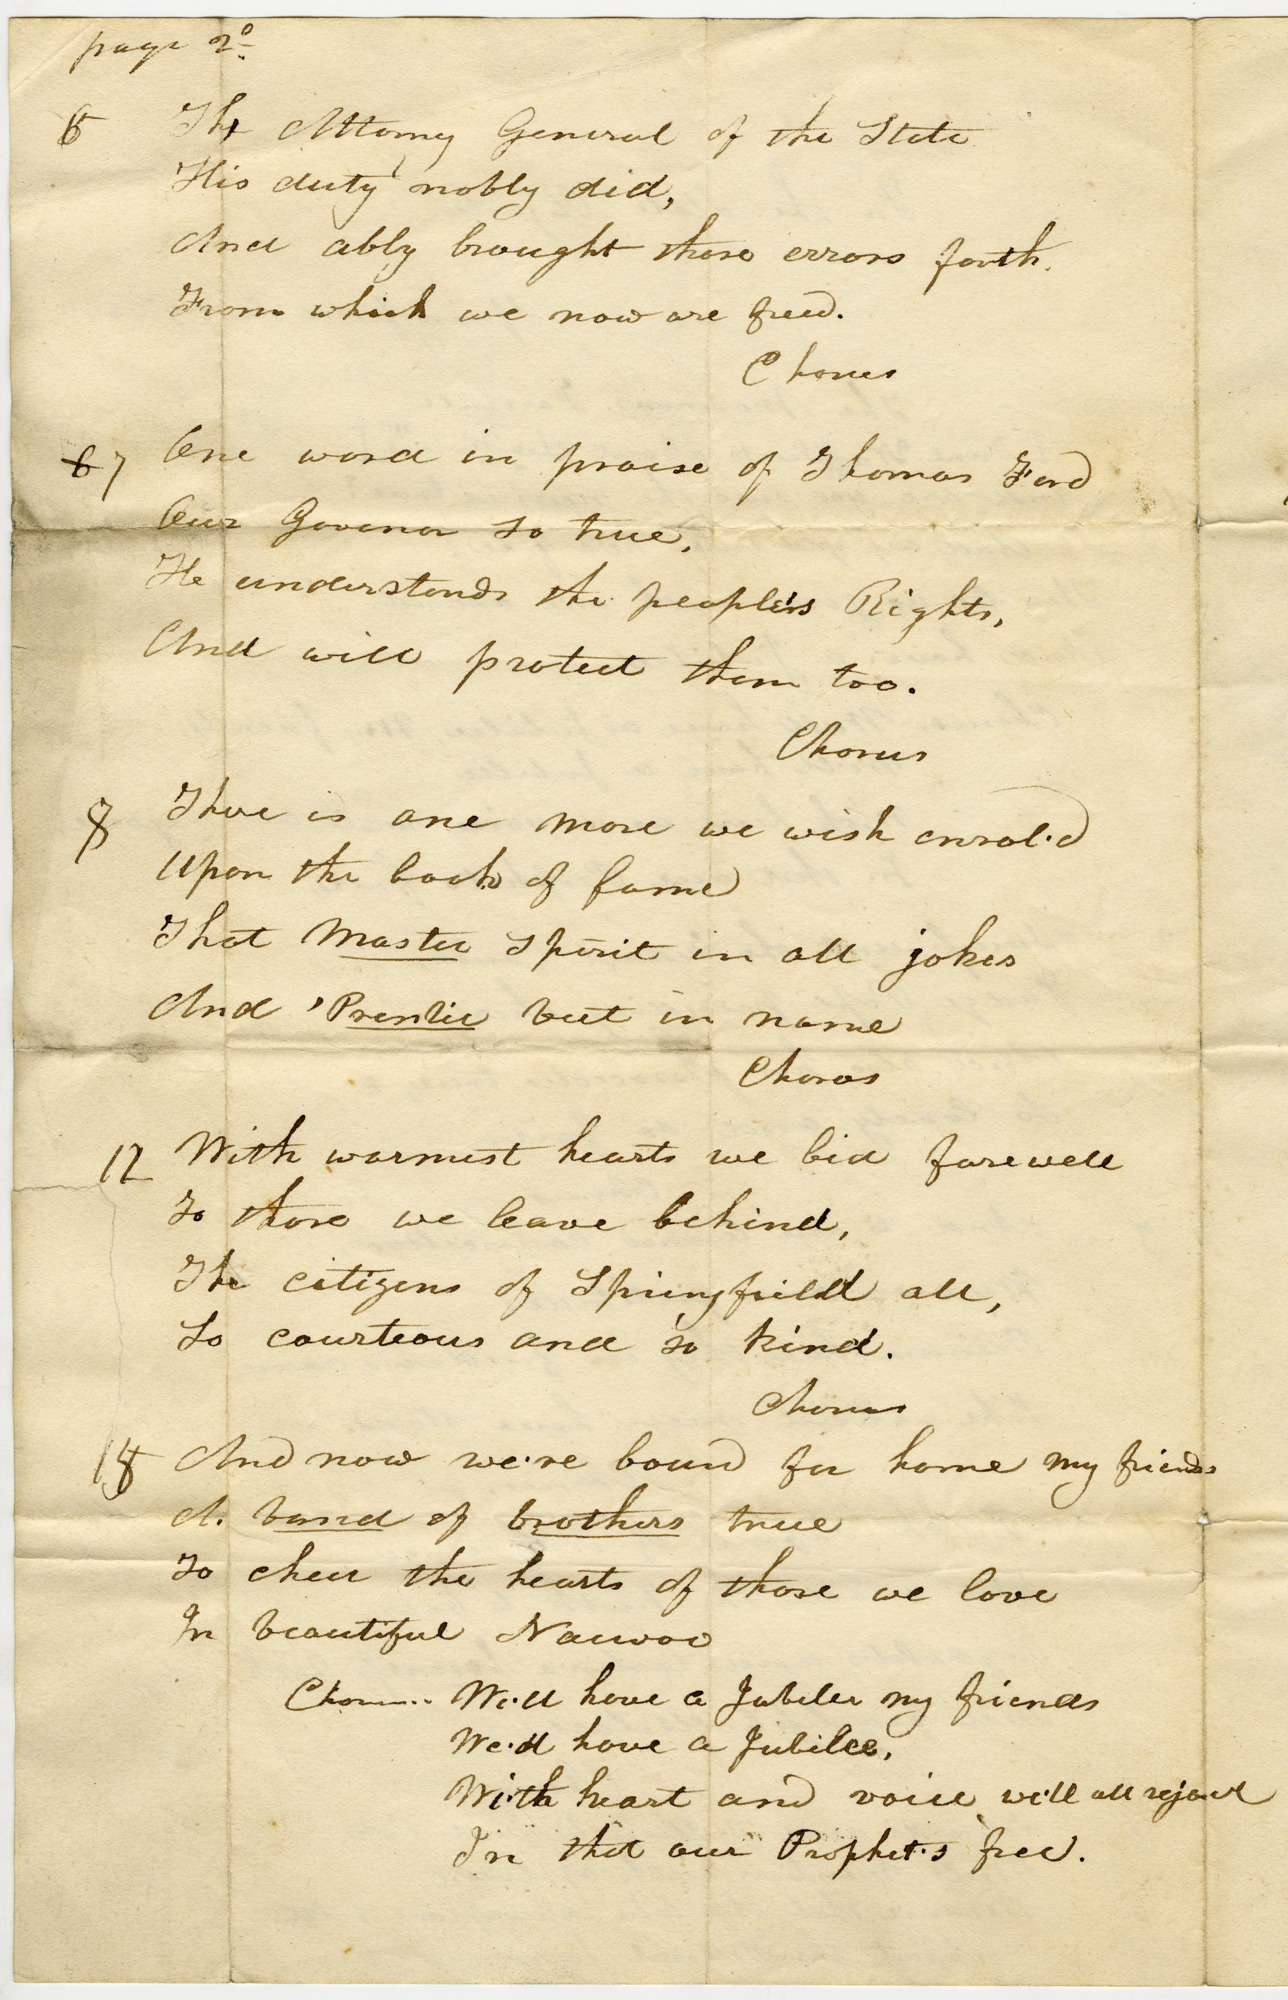 page 2º
6 The Attorny General of the State
His duty nobly did,
And ably brought those errors forth.
From which we now are freed.
Chorus
6 7 One word in praise of Thomas Ford
Our Govenor so true,
He understands the people's Rights,
And will protect them too.
Chorus
8 There is one more we wish enrol'd
Upon the book of fame
That Master Spirit in all jokes
And 'Prentice but in name
Chorus
12 With warmest hearts we bid farewell
To those we leave behind,
The citizens of Springfield all,
So courteous and so kind.
Chorus
13 And now we're bound for home my friends
A. band of brothers true
To cheer the hearts of those we love
In beautiful Nauvoo
Chorus.. We'll have a Jubilee my friends
We'll have a Jubilee,
With heart and voice we'll all rejoice
In that our Prophet's free.